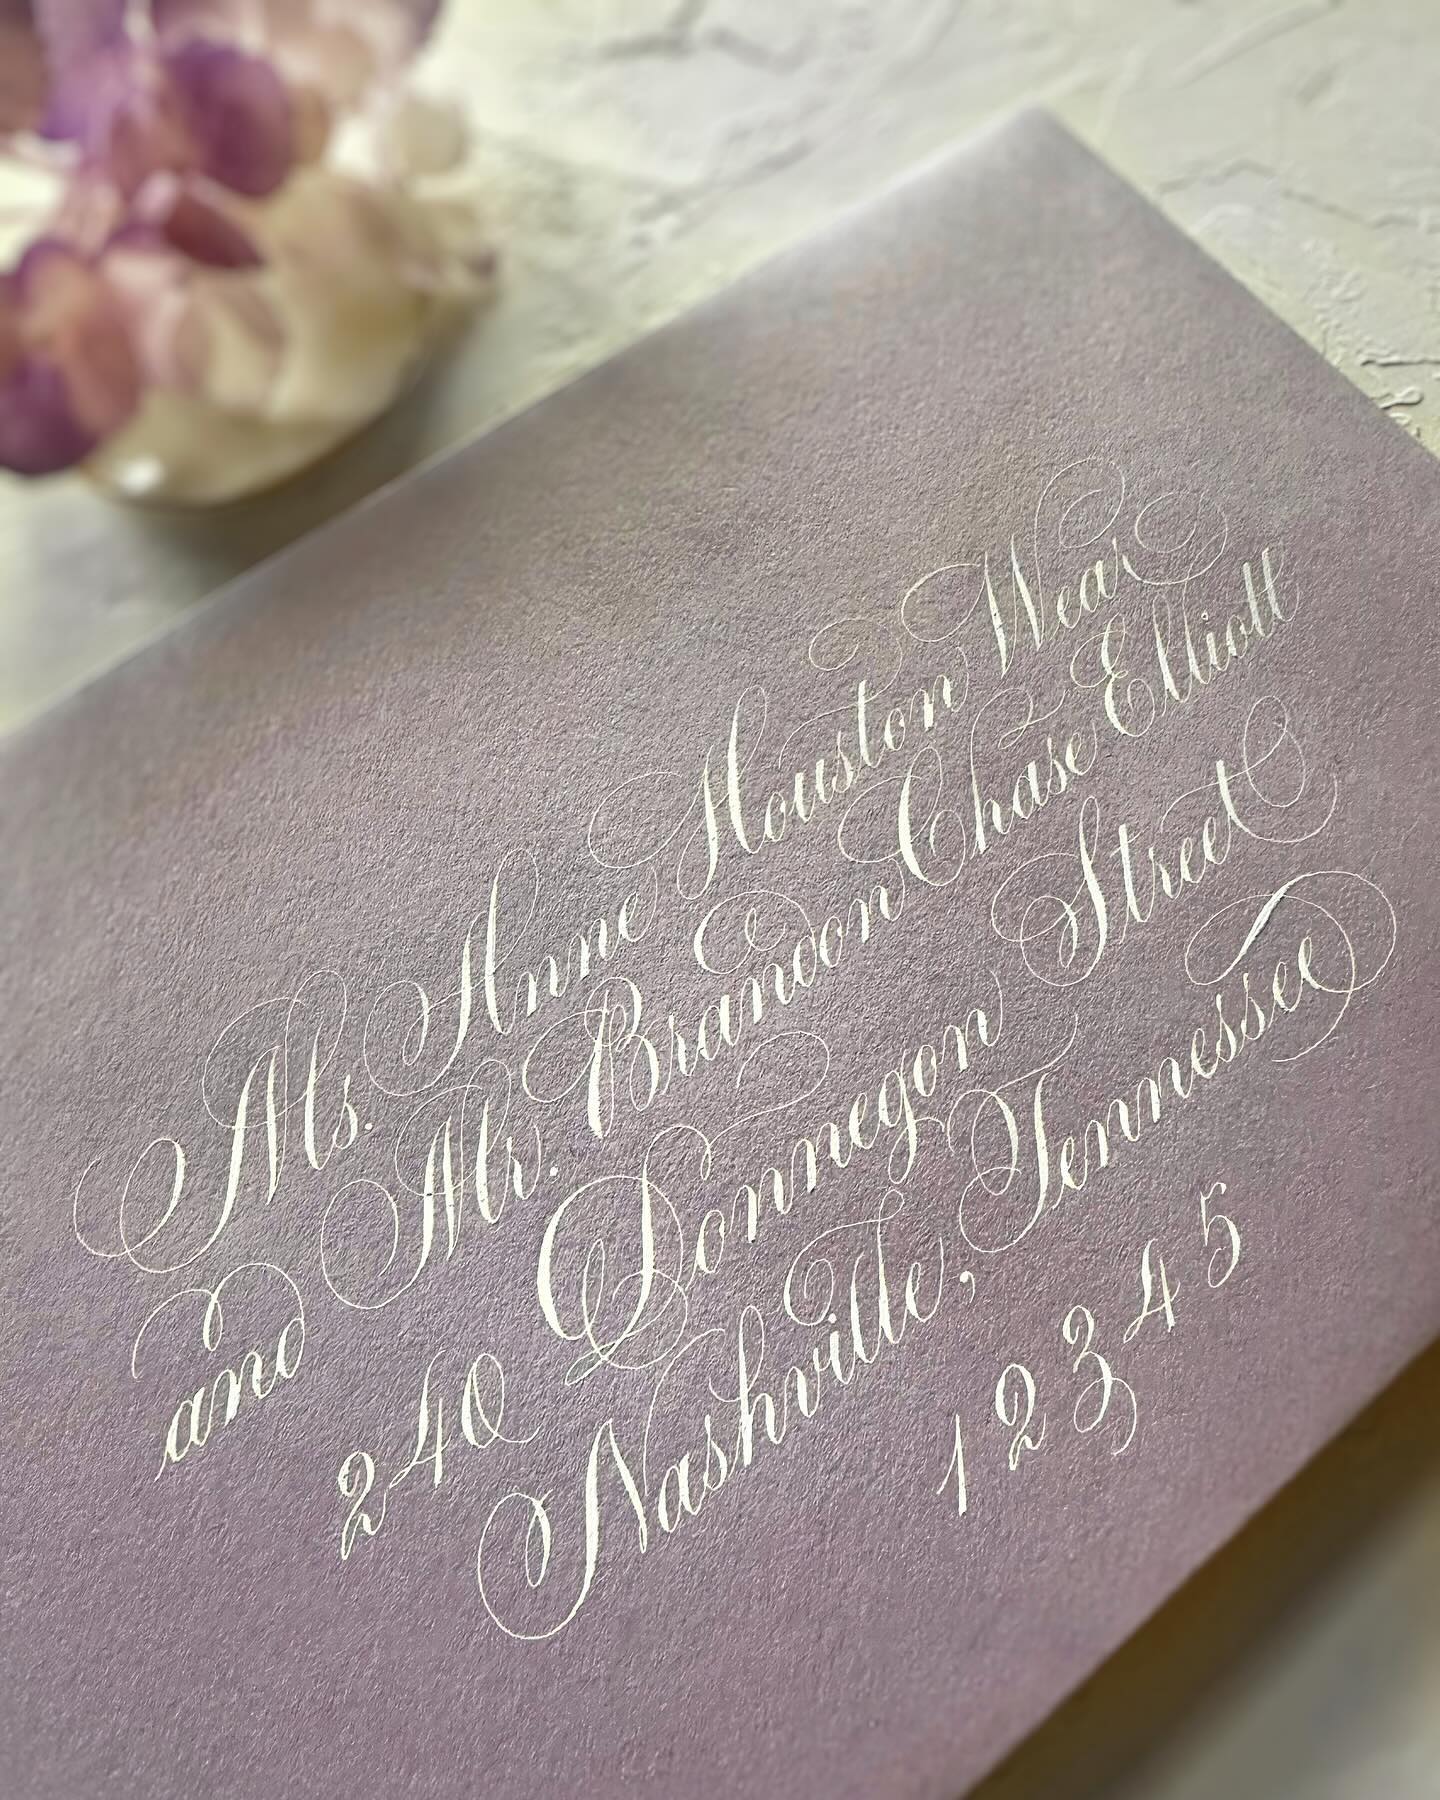 Ms. Anne Houston Wear
and Mr. Brandon Chase Elliott
240 Donnegon Street
Nashville, Tennessee
12345